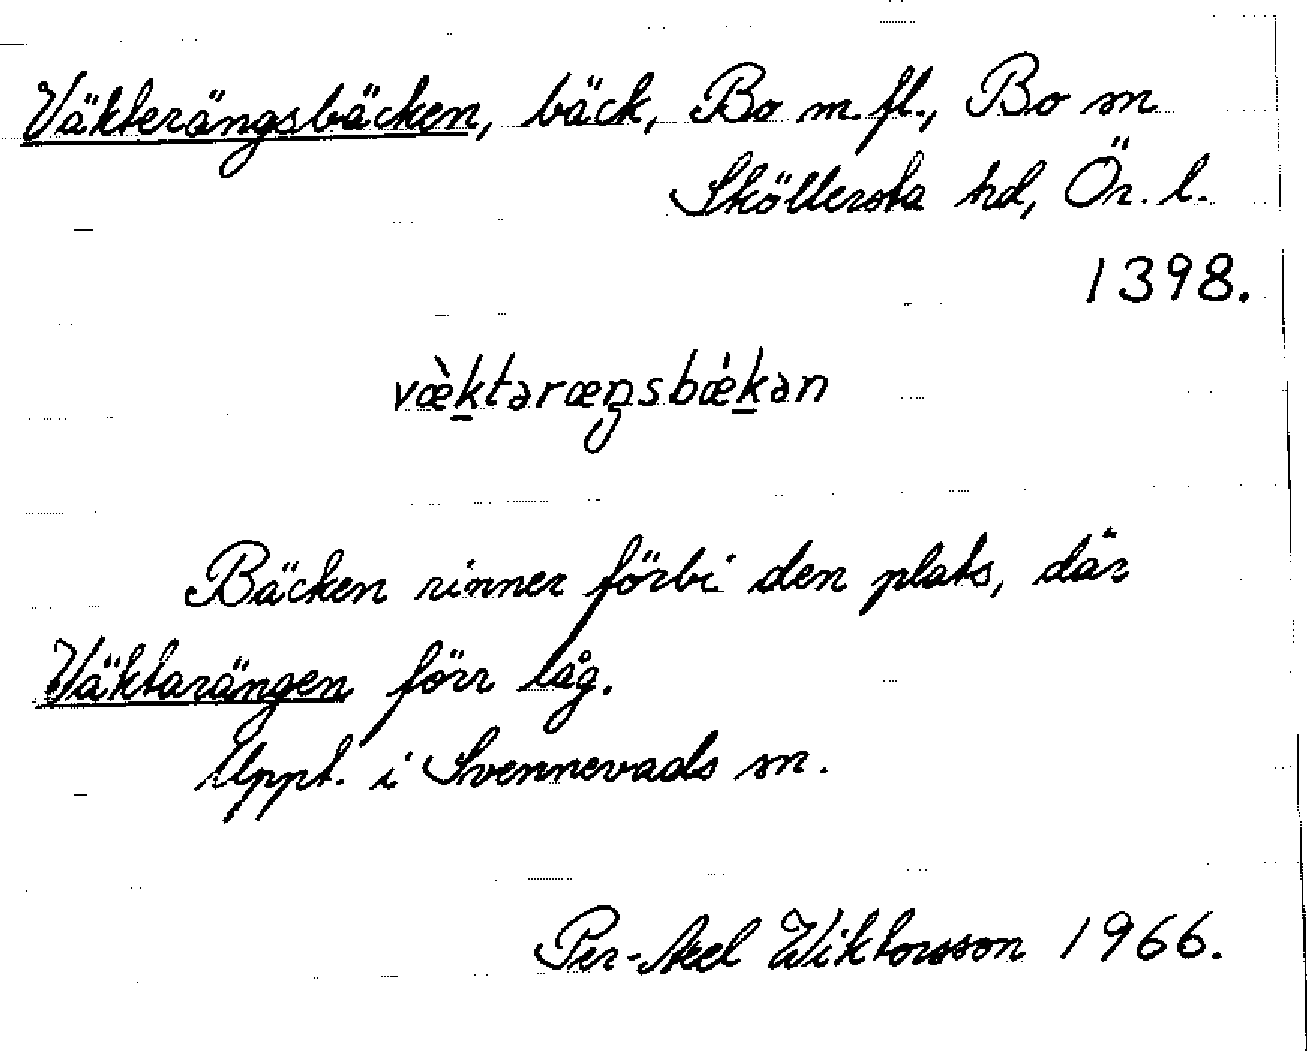 Väkterängsbäcken, bäck, Bo m. fl., Bo sn
Sköllersta hd, Ör. l.
1398.
væ̀k̲təræŋsbǽk̲ən
Bäcken rinner förbi den plats, där
Väktarängen förr låg.
Uppt. i Svennevads sn.
Per-Axel Wiktorsson 1966.